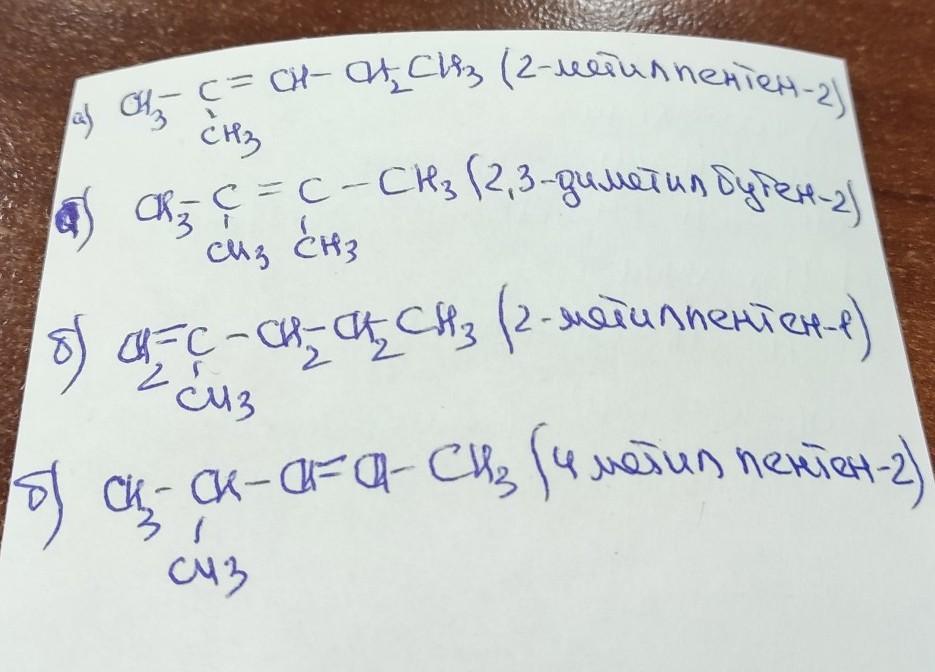 а) CH3 - C = CH - CH2CH3 (2-метилпентен-2)
CH3
б) CH3 - C = C - CH3 (2,3-диметилбутен-2)
CH3 CH3
б) CH2=C - CH2-CH2CH3 (2-метилпентен-1)
CH3
б) CH3 - CH - CH=CH - CH3 (4 метил пентен-2)
CH3